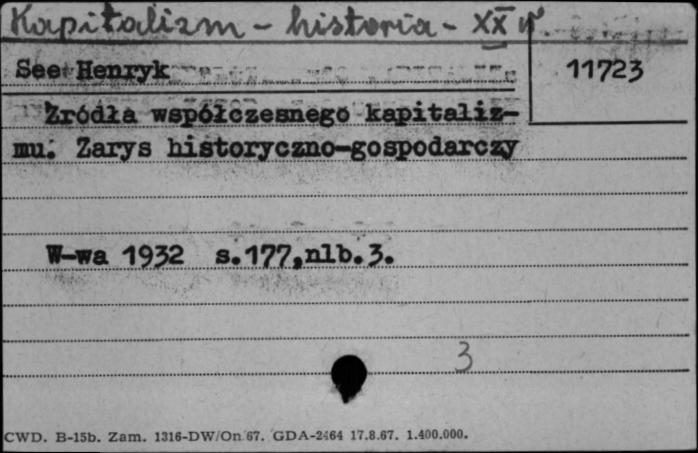 Kapitalizm - historia - XX w.
See Henryk
11723
Źródła współczesnego kapitaliz-
mu. Zarys historyczno-gospodarczy
W-wa 1932 s.177,nlb.3.
3
CWD. B-15b. Zam. 1316-DW/On 67. GDA-2464 17.8.67. 1.400.000.